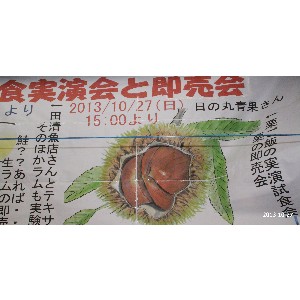 食実演会と即売会
より
2013/10/27(日) 日の丸青果さん
15:00より
栗ご飯の実演試食会
栗の即売会
一田清魚店さんとテキサ
そのほかラムも実験
鮭??あれば・・
生ラムの即売
2013 10 27